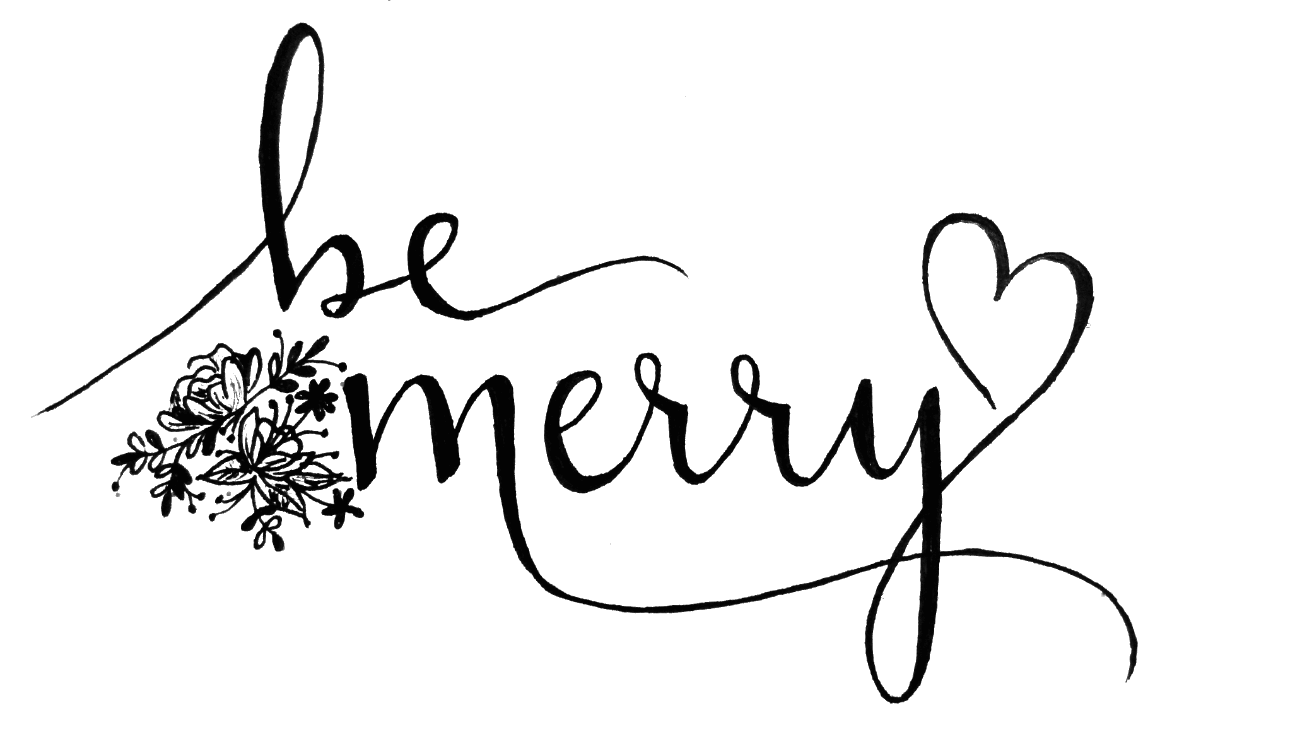 be
merry